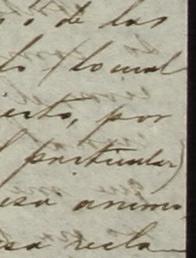 de las
lo cual
esto, por
particular)
esa animo
sa recla